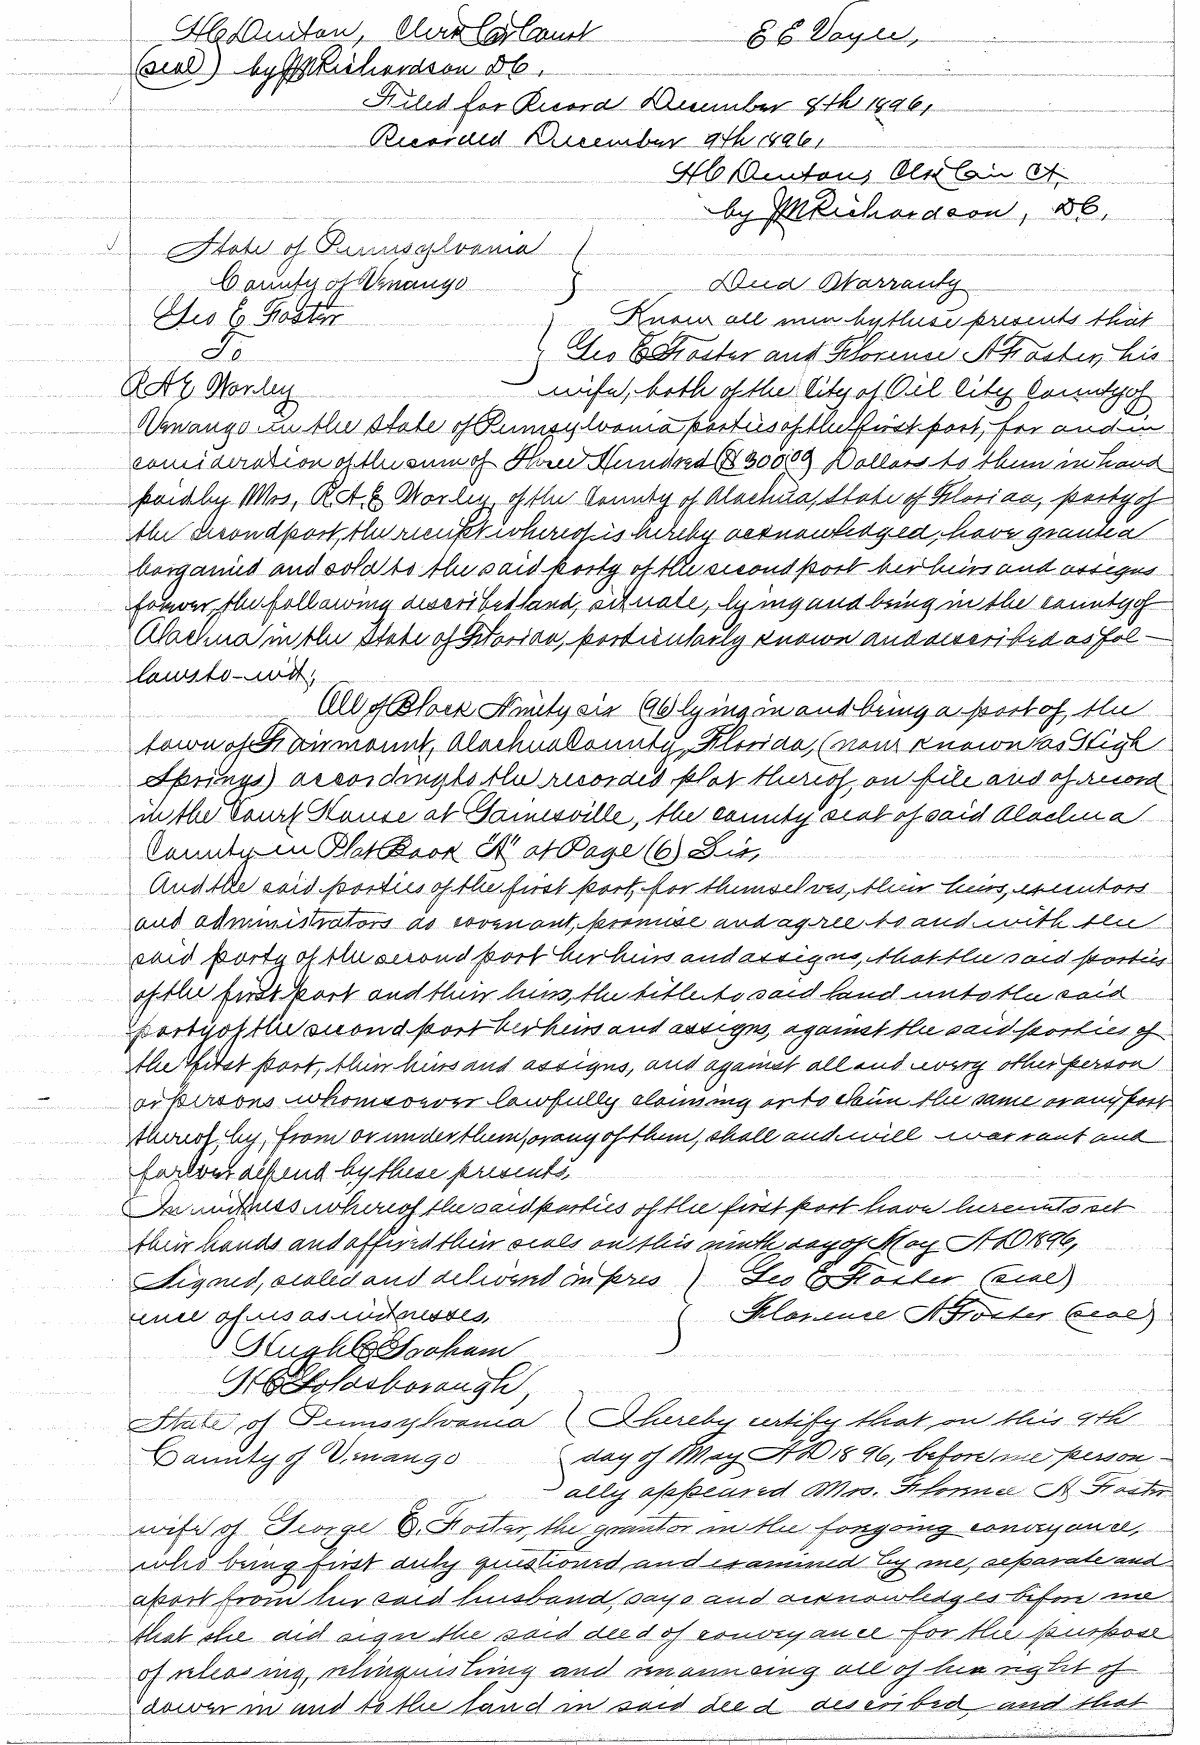 H C Denton, Clerk Cir Court E E Voyle,
(seal) by J M Richardson D C.
Filed for Record December 8th 1896,
Recorded December 9th 1896,
H C Denton, Clk Cir Ct.
by J M Richardson, D C,
State of Pennsylvania
County of Venango Deed Warranty
Geo E Foster Know all men by these presents that
To Geo E Foster and Florence A Foster, his
R A E Worley wife, both of the City of Oil City County of
Venango in the State of Pennsylvania parties of the first part, for and in
consideration of the sum of Three Hundred ($300 00) Dollars to them in hand
paid by Mrs, R. A. E Worley, of the County of Alachua, State of Florida, party of
the second part, the receipt whereof is hereby acknowledged, have granted
bargained and sold to the said party of the second part her heirs and assigns
forever, the following described land, situate, lying and being in the county of
Alachua in the State of Florida, particularly known and described as fol-
lows to-wit;
All of Block Ninety six (96) lying in and being a part of, the
town of Fairmount, Alachua County, Florida, (now known as High
Springs) according to the recorded plat thereof, on file and of record
in the Court House at Gainesville, the county seat of said Alachua
County in Plat Book "A" at Page (6) Six,
And the said parties of the first part, for themselves, their heirs, executors
and administrators do covenant, promise and agree to and with the
said party of the second part her heirs and assigns, that the said parties
of the first part and their heirs, the title to said land unto the said
party of the second part her heirs and assigns, against the said parties of
the first part, their heirs and assigns, and against all and every other person
or persons whomsoever lawfully claiming or to claim the same or any part
thereof, by, from or under them, or any of them, shall and will warrant and
forever defend by these presents,
In witness whereof the said parties of the first part have hereunto set
their hands and affixed their seals on this ninth day of May A D 1896,
Signed, sealed and delivered in pres Geo E Foster (seal)
ence of us as witnesses, Florence A Foster (seal)
Hugh C Graham
H C Goldsborough,
State of Pennsylvania I hereby certify that on this 9th
County of Venango day of May A D 1896, before me person-
ally appeared Mrs. Florence A Foster
wife of George E. Foster, the grantor in the foregoing conveyance,
who being first duly questioned and examined by me, separate and
apart from her said husband, says and acknowledges before me
that she did sign the said deed of conveyance for the purpose
of releasing, relinquishing and renouncing all of her right of
dower in and to the land in said deed described, and that